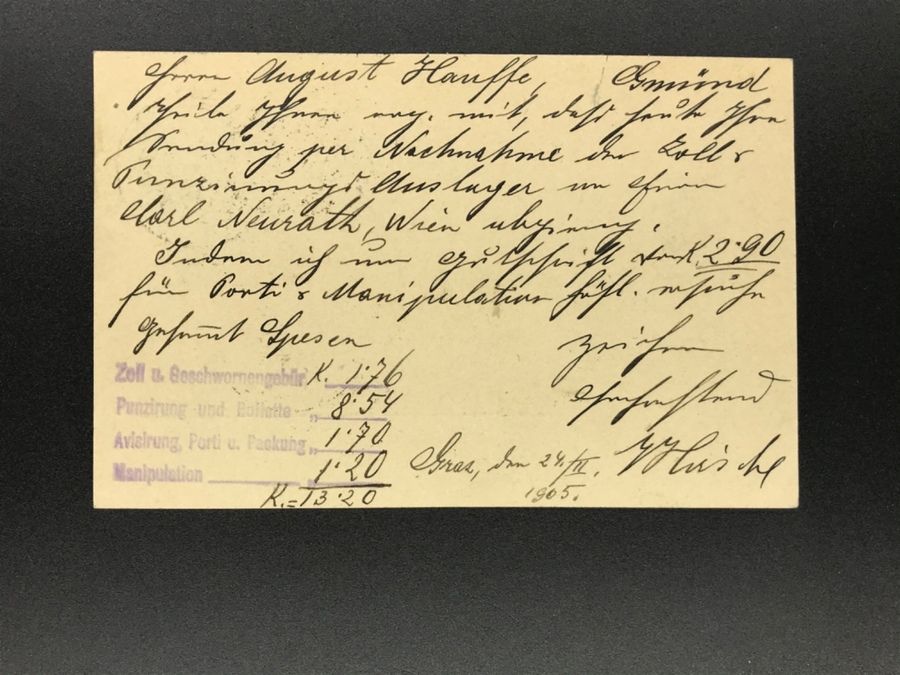 Herrn August Hauffe, Gmünd
Theile Ihnen erg. mit, daß heute Ihre
Sendung per Nachnahme der Zoll &
Punzirungs Auslagen an Herrn
Carl Neurath, Wien abgieng.
Indem ich um Gutschrift von K. 2·90
für Porti & Manipulation höfl. ersuche
zeichne
Gesammt Spesen
hochachtend
Zoll u. Geschwornengebür K. 1·76
Punzirung und Bollette „ 8·54
Avisirung, Porti u. Packung „ 1·70
Manipulation „ 1·20
K. = 13·20
Graz, den 24./II.
1905.